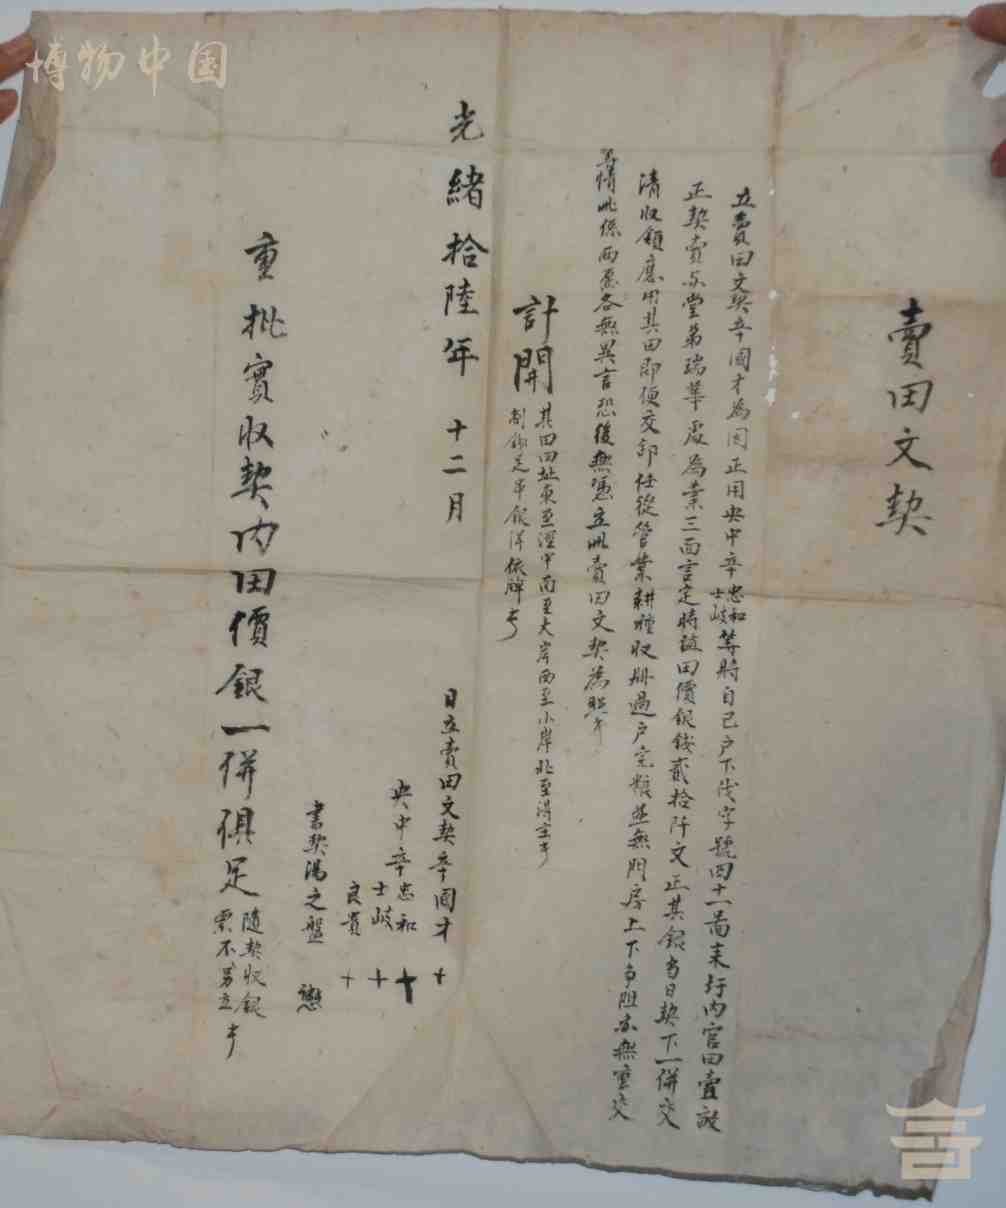 博物中国
賣田文契
立賣田文契辛國才為因正用央中辛忠和士岐等將自己戶下伐字號四十一啚末圩內官田壹畝
正契賣與堂弟瑞華處為業三面言定時值田價銀錢貳拾阡文正其銀當日契下一併交
清收領應用其田即便交卸任從管業耕種收冊過戶完糧並無門房上下爭阻亦無重交
等情此係兩愿各無異言恐後無憑立此賣田文契為照
計開
其田四址東至涇中南至大岸西至小岸北至得主
制錢足串銀洋依牌
光緒拾陸年十二月
日立賣田文契辛國才 十
央中辛忠和 十
士岐 十
良貴 十
書契湯之盤
重批實收契內田價銀一併俱足
隨契收銀
票不另立